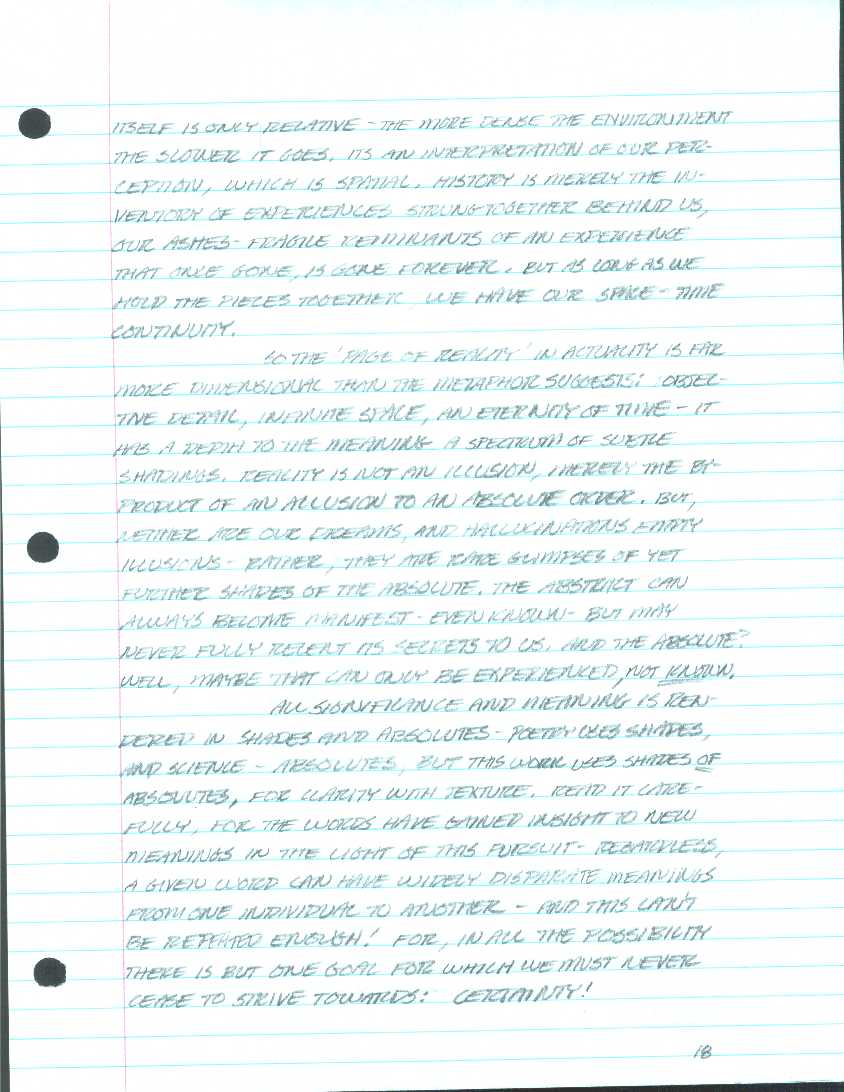 ITSELF IS ONLY RELATIVE - THE MORE DENSE THE ENVIRONMENT
THE SLOWER IT GOES. ITS AN INTERPRETATION OF OUR PER-
CEPTION, WHICH IS SPATIAL. HISTORY IS MERELY THE IN-
VENTORY OF EXPERIENCES STRUNG TOGETHER BEHIND US,
OUR ASHES - FRAGILE REMINANTS OF AN EXPERIENCE
THAT ONCE GONE, IS GONE FOREVER. BUT AS LONG AS WE
HOLD THE PIECES TOGETHER WE HAVE OUR SPACE - TIME
CONTINUITY.
SO THE 'PAGE OF REALITY' IN ACTUALITY IS FAR
MORE DIMENSIONAL THAN THE METAPHOR SUGGESTS: OBJEC-
TIVE DETAIL, INFINITE SPACE, AN ETERNITY OF TIME - IT
HAS A DEPTH TO THE MEANING A SPECTRUM OF SUBTLE
SHADINGS. REALITY IS NOT AN ILLUSION, MERELY THE BY-
PRODUCT OF AN ALLUSION TO AN ABSOLUTE ORDER. BUT,
NEITHER ARE OUR DREAMS, AND HALLUCINATIONS EMPTY
ILLUSIONS - RATHER, THEY ARE RARE GLIMPSES OF YET
FURTHER SHADES OF THE ABSOLUTE. THE ABSTRACT CAN
ALWAYS BECOME MANIFEST - EVEN KNOWN - BUT MAY
NEVER FULLY RELENT ITS SECRETS TO US. AND THE ABSOLUTE?
WELL, MAYBE THAT CAN ONLY BE EXPERIENCED, NOT KNOWN.
ALL SIGNIFICANCE AND MEANING IS REN-
DERED IN SHADES AND ABSOLUTES - POETRY USES SHADES,
AND SCIENCE - ABSOLUTES, BUT THIS WORK USES SHADES OF
ABSOLUTES, FOR CLARITY WITH TEXTURE. READ IT CARE-
FULLY, FOR THE WORDS HAVE GAINED INSIGHT TO NEW
MEANINGS IN THE LIGHT OF THIS PURSUIT - REGARDLESS,
A GIVEN WORD CAN HAVE WIDELY DISPARATE MEANINGS
FROM ONE INDIVIDUAL TO ANOTHER - AND THIS CAN'T
BE REPEATED ENOUGH! FOR, IN ALL THE POSSIBILITY
THERE IS BUT ONE GOAL FOR WHICH WE MUST NEVER
CEASE TO STRIVE TOWARDS: CERTAINTY!
18